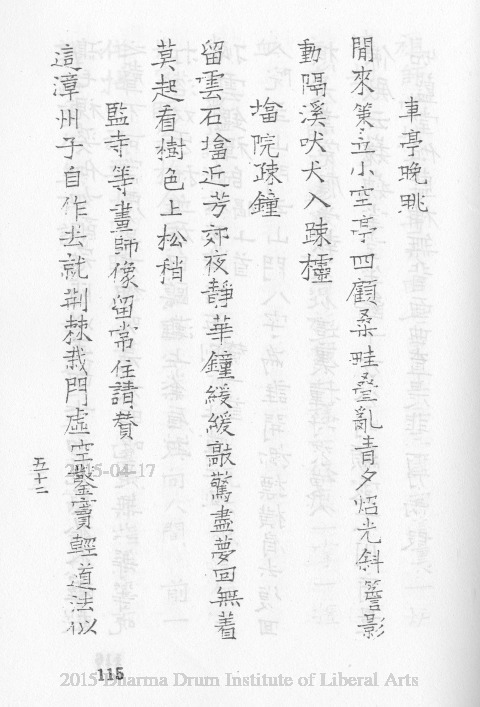 車亭晚眺
閒來策立小空亭四顧桑畦叠亂青夕炤光斜簷影
動隔溪吠犬入疎櫺
墖院疎鐘
留雲石墖近芳郊夜靜華鐘緩緩敲驚盡夢回無着
莫起看樹色上松稍
監寺等畫師像留常住請贊
這漳州子自作去就荆棘栽門虛空鑿竇輕道法似
五十二
2015-04-17
115
2015 Dharma Drum Institute of Liberal Arts